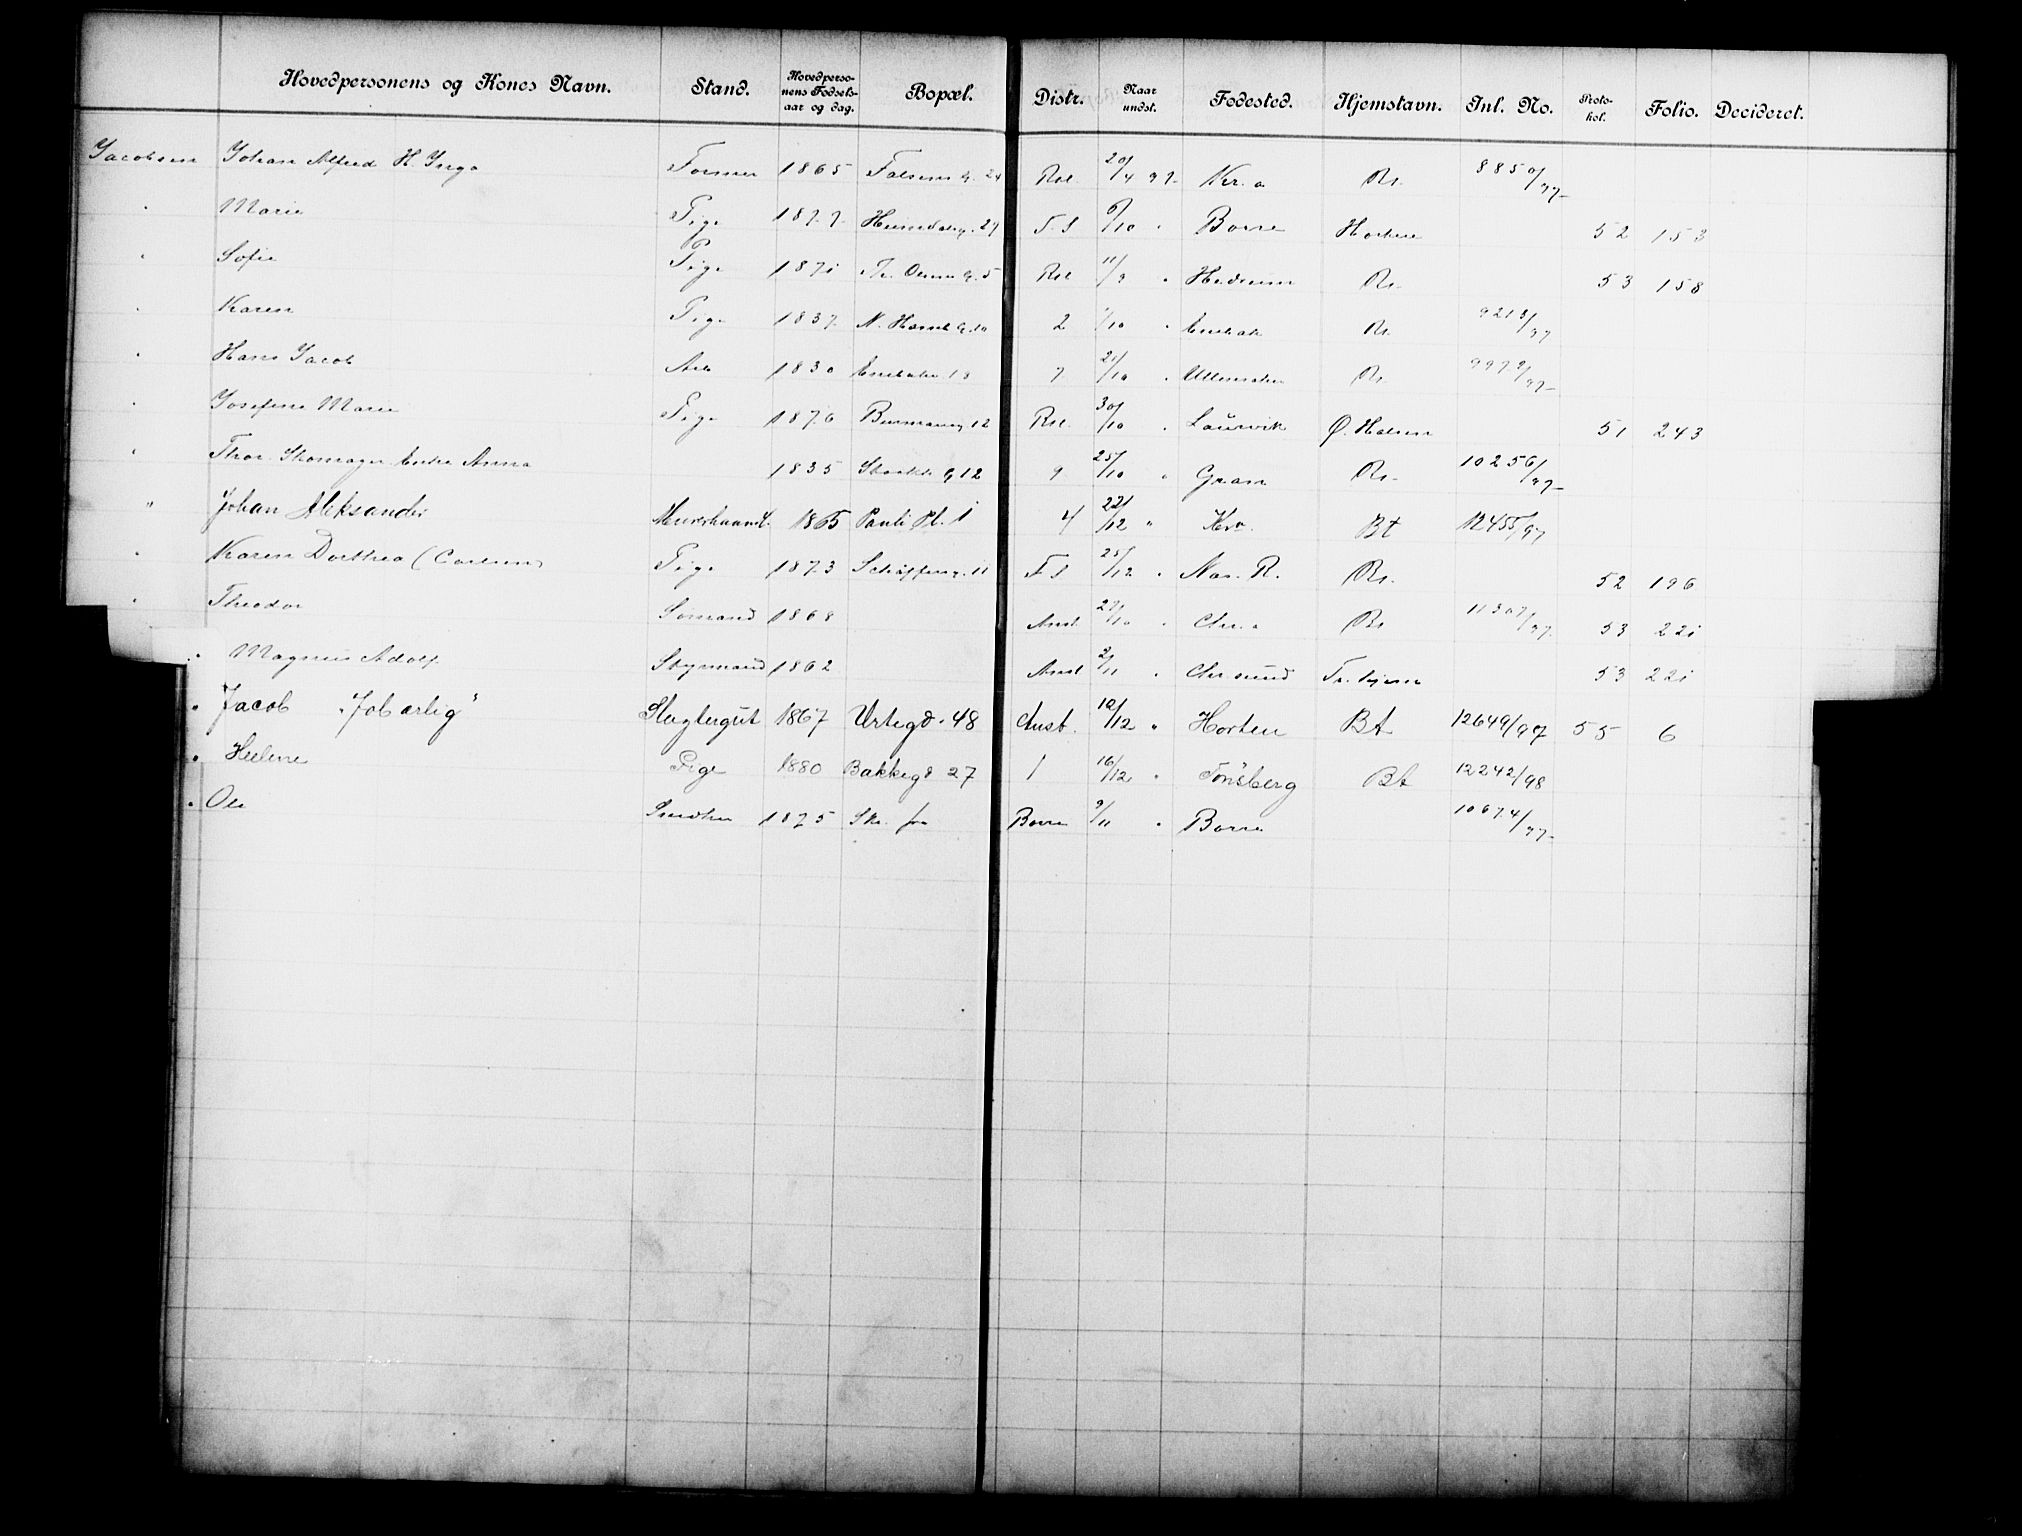 Hovedpersonens og Kones Navn. Stand. Hovedpersonens Fødselsaar og dag. Bopæl. Distr. Naar undst. Fødested. Hjemstavn. Inl. No. Protokol. Folio. Decideret.
Jacobsen Johan Alfred H. Inga Former 1865 Falsens G. 24 Rst. 20/4 97 Kr.a Br. 8850/97
" Marie Pige 1877 Heimdalsg. 27 F. S 6/10 " Borre Horten 52 153
" Sofie Pige 1871 Th. Olsens G. 5 Rst. 11/9 " Hedrum Br. 53 158
" Karen Pige 1837 N. G. 10 2 /10 " Enebak Br. 9213/97
" Hans Jacob Arb 1830 7 21/10 " Ullensaker Br. 9979/97
" Josefine Marie Pige 1876 12 Rst. 30/10 " Laurvik Ø. Halsen 51 243
" Thor. Skomager Enke Anna 1835 G 12 9 25/10 " Gran Br. 10256/97
" Johan Aleksander Murerhaandl. 1865 Pauli Pl. 1 4 22/12 " Kra. Bt 12455/97
" Karen Dorthea (Carlsen) Pige 1873 11 F S 25/12 " Nas. R. Br. 52 196
" Theodor Sømand 1868 Anst. 27/10 " Chr.a Br 11307/97 53 221
" Magnus Adolf Styrmand 1862 Anst 2/11 " Chr.sund Tr.hjem 53 221
" Jacob "Jobarlig" Slagtergut 1867 Urtegd. 48 Anst. 10/12 " Horten Bt 12649/97 55 6
" Helene Pige 1880 Bakkegd 27 1 16/12 " Tønsberg Bt 12242/98
" Ole 1875 Skr. fra Borre 9/11 " Borre 10674/97